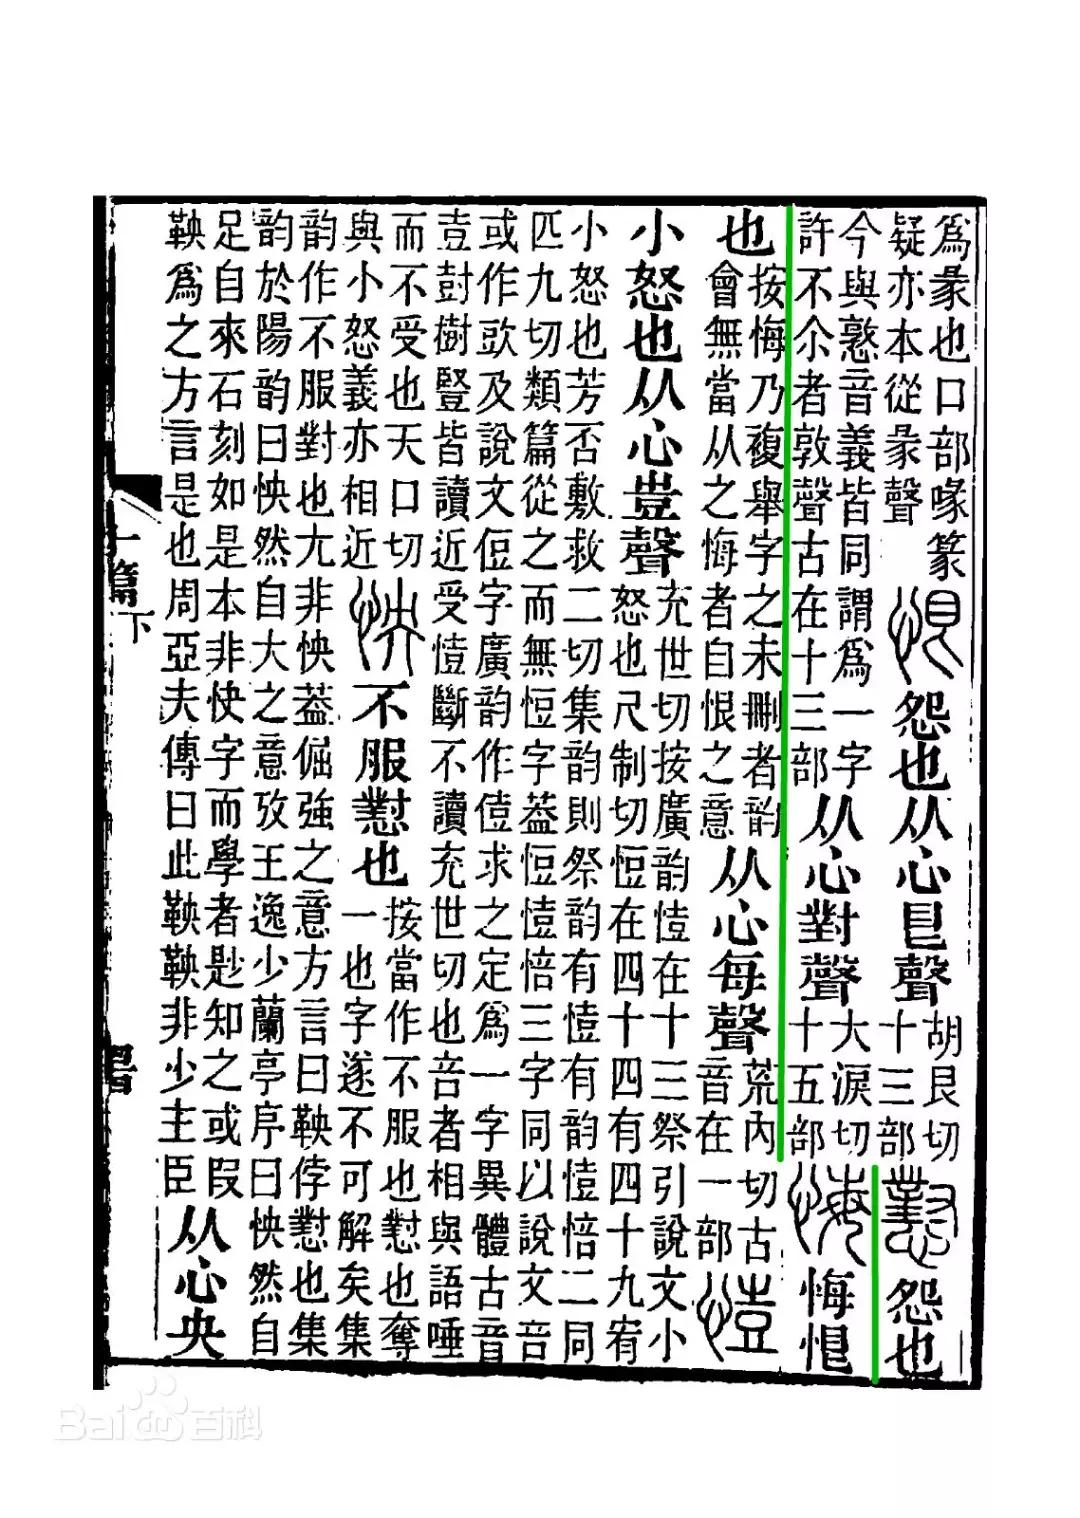 爲彖也口部喙篆疑亦本從彖聲恨怨也从心㫐聲胡艮切十三部懟怨也
今與憝音義皆同謂爲一字許不尒者敦聲古在十三部从心對聲大淚切十五部悔悔恨
也按悔乃複舉字之未刪者韵會無當从之悔者自恨之意从心每聲荒內切古音在一部
小怒也从心壴聲充世切按廣韵在十三祭引說文小怒也尺制切在四十四有四十九宥
小怒也芳否敷救二切集韵則祭韵有有韵二同匹九切類篇從之而無字葢三字同以說文咅
或作及說文侸字廣韵作求之定爲一字異體古音壴尌樹豎皆讀近受斷不讀充世切也咅者相與語唾
而不受也天口切與小怒義亦相近怏不服懟也按當作不服也懟也奪一也字遂不可解矣集
韵作不服對也尢非怏葢倔強之意方言曰鞅侼懟也集韵於陽韵曰怏然自大之意攷王逸少蘭亭序曰怏然自
足自來石刻如是本非快字而學者尟知之或叚鞅爲之方言是也周亞夫傳曰此鞅鞅非少主臣从心央
十篇下
Bai百科